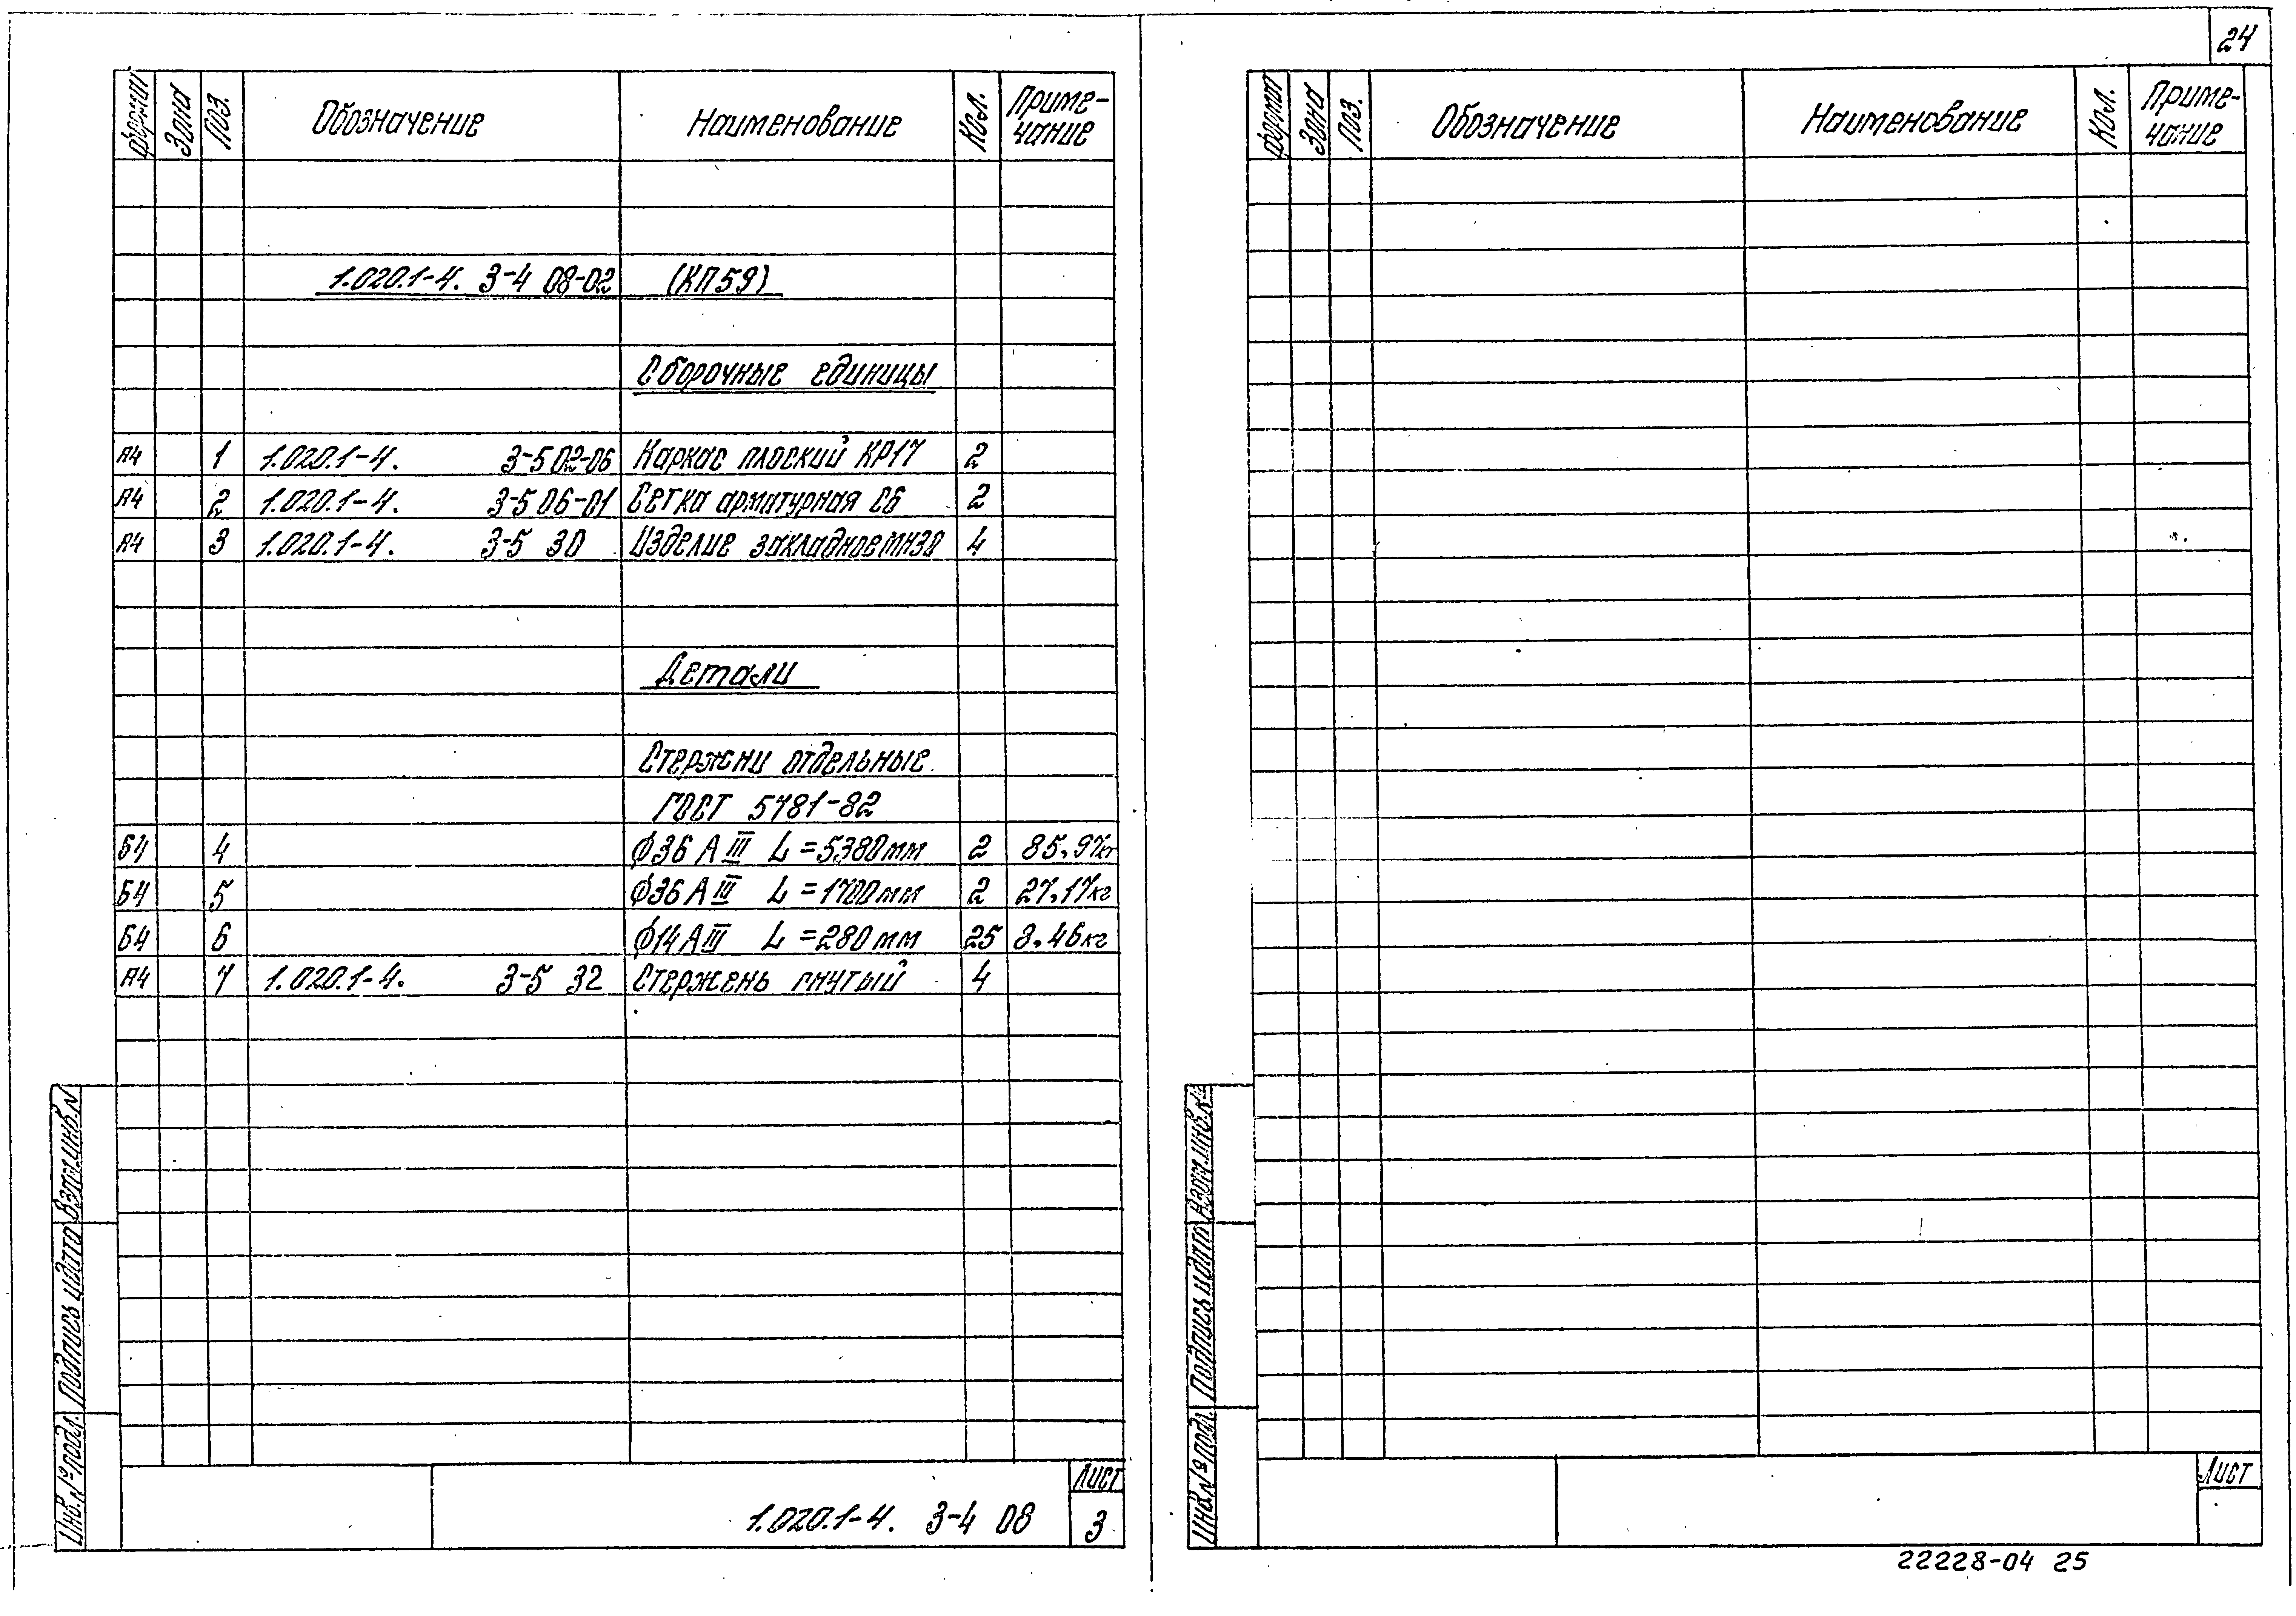 24
Формат Зона Поз. Обозначение Наименование Кол. Приме-
чание
1.020.1-4. 3-4 08-02 (КП59)
Сборочные единицы
А4 1 1.020.1-4. 3-5 02-06 Каркас плоский КР17 2
А4 2 1.020.1-4. 3-5 06-01 Сетка арматурная С6 2
А4 3 1.020.1-4. 3-5 30 Изделие закладное МН30 4
Детали
Стержни отдельные
ГОСТ 5781-82
Б4 4 ф36 АIII L=5380мм 2 85.97кг
Б4 5 ф36 АIII L=1700мм 2 27.17кг
Б4 6 ф14АIII L=280мм 25 8.46кг
А4 7 1.020.1-4. 3-5 32 Стержень гнутый 4
Взам.инв.N
Подпись и дата
Инв.№подл.
1.020.1-4. 3-4 08
Лист
3
Формат Зона Поз. Обозначение Наименование Кол. Приме-
чание
Взам.инв.№
Подпись и дата
Инв.№подл.
Лист
22228-04 25